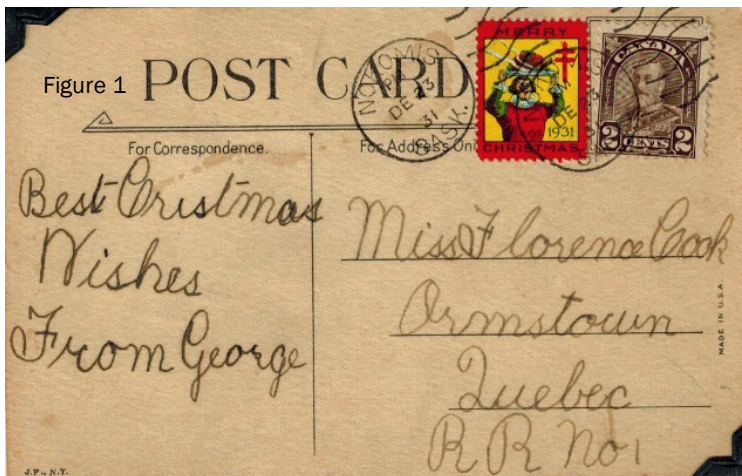 Figure 1
POST CARD
NOKOMIS
PM
DE 23
31
SASK.
MERRY
1931
CHRISTMAS
CANADA
2 CENTS 2
For Correspondence.
For Address Only
Best Cristmas
Wishes
From George
Miss Florence Cook
Ormstown
Quebec
R R No 1
MADE IN U.S.A.
J.P., N.Y.